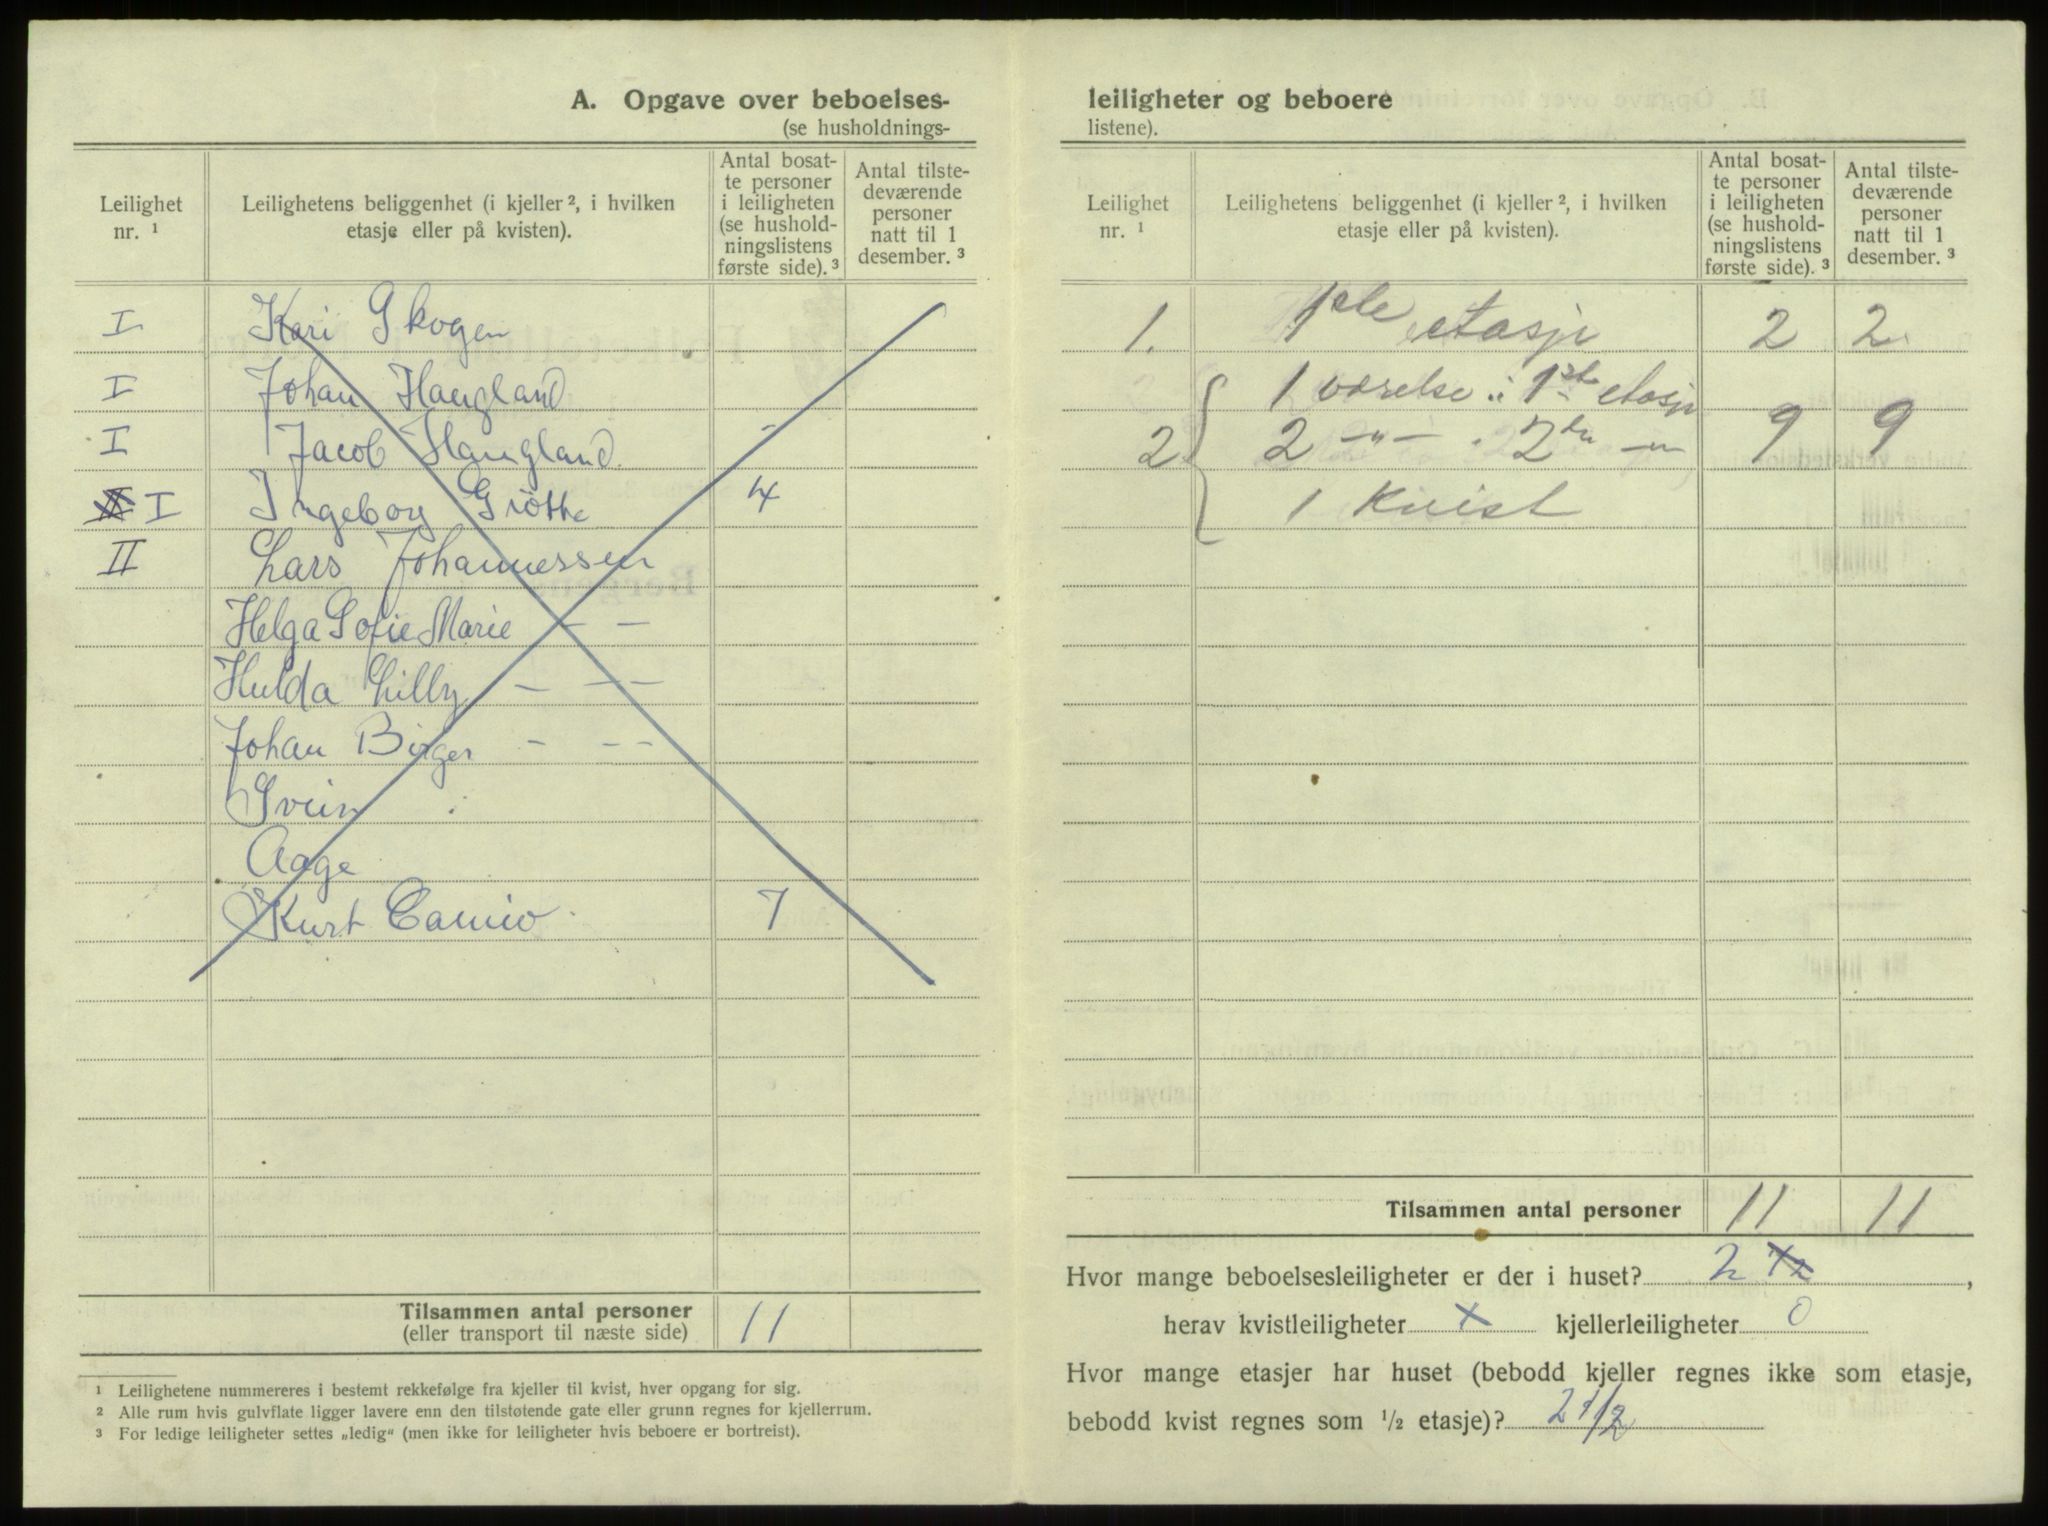 A. Opgave over beboelses-
(se husholdnings-
Leilighet nr. ¹
Leilighetens beliggenhet (i kjeller ², i hvilken etasje eller på kvisten).
Antal bosat-te personer i leiligheten (se hushold-ningslistens første side). ³
Antal tilste-deværende personer natt til 1 desember. ³
I Kari Skogen
I Johan Haugland
I Jacob Haugland -
I Ingeborg 4
II Lars Johannessen
Helga Sofie Marie — —
Hulda Lilly — — —
Johan Birger - - -
Svein
Aage
Kurt 7
Tilsammen antal personer 11
(eller transport til næste side)
¹ Leilighetene nummereres i bestemt rekkefølge fra kjeller til kvist, hver opgang for sig.
² Alle rum hvis gulvflate ligger lavere enn den tilstøtende gate eller grunn regnes for kjellerrum.
³ For ledige leiligheter settes „ledig“ (men ikke for leiligheter hvis beboere er bortreist).
leiligheter og beboere
listene).
Leilighet nr. ¹
Leilighetens beliggenhet (i kjeller ², i hvilken etasje eller på kvisten).
Antal bosat-te personer i leiligheten (se hushold-ningslistens første side). ³
Antal tilste-deværende personer natt til 1 desember. ³
1. 1ste etasje 2 2
1 værelse i 1ste etasje
2 2 —„— i 2den —„— 9 9
1 Kvist
Tilsammen antal personer 11 11
Hvor mange beboelsesleiligheter er der i huset? 2,
herav kvistleiligheter x kjellerleiligheter 0
Hvor mange etasjer har huset (bebodd kjeller regnes ikke som etasje,
bebodd kvist regnes som ½ etasje)? 2 1/2